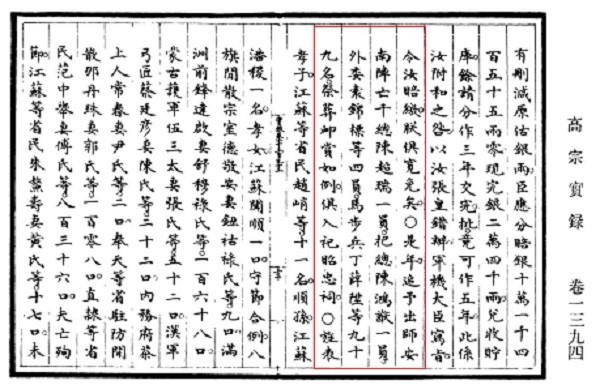 高宗實錄 卷一三九四
有刪減原估銀兩臣應分賠銀十萬一千四
百五十五兩零現完銀二萬四千兩兌收貯
庫餘請分作三年交完批竟可作五年此係
汝附和之咎以汝張皇錯辦軍機大臣寫旨
令汝賠繳朕俱寬免矣○是年追予出師安
南陣亡千總陳超瑞一員把總陳鴻猷一員
外委袁錦標等四員馬步兵丁薛陞等九十
九名祭葬卹賞如例俱入祀昭忠祠○旌表
孝子江蘇等省民趙峭等十一名順孫江蘇
潘稜一名孝女江蘇閔順一口守節合例八
旗閒散宗室德敬安妻鈕祜祿氏等九口滿
洲前鋒達啟妻舒穆祿氏等一百六十八口
蒙古護軍伍三太妻張氏等五十二口漢軍
弓匠蔡廷彥妻陳氏等二十二口內務府蔡
上人常春妻尹氏等二口奉天等省駐防閒
散那丹珠妻郭氏等一百零八口直隸等省
民范中舉妻傅氏等八百三十六口夫亡殉
節江蘇等省民朱壽妻黃氏等十七口未